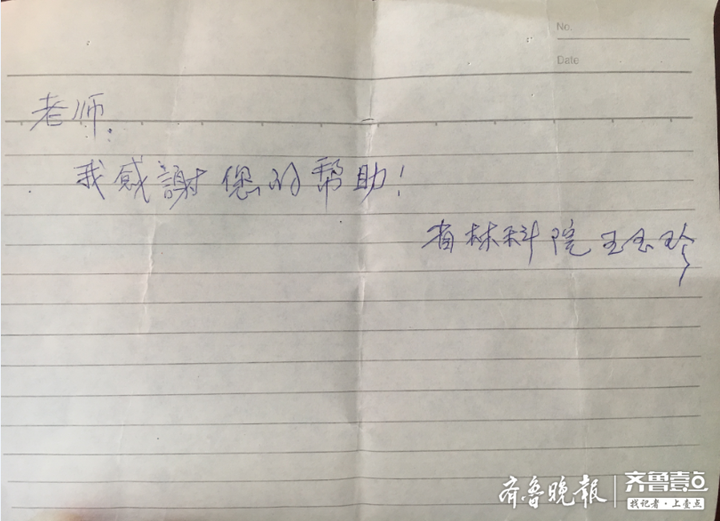 No.
Date
老师.
我感謝您的帮助!
省林科院 王玉珍
齐鲁晚报
齐鲁壹点
找记者·上壹点